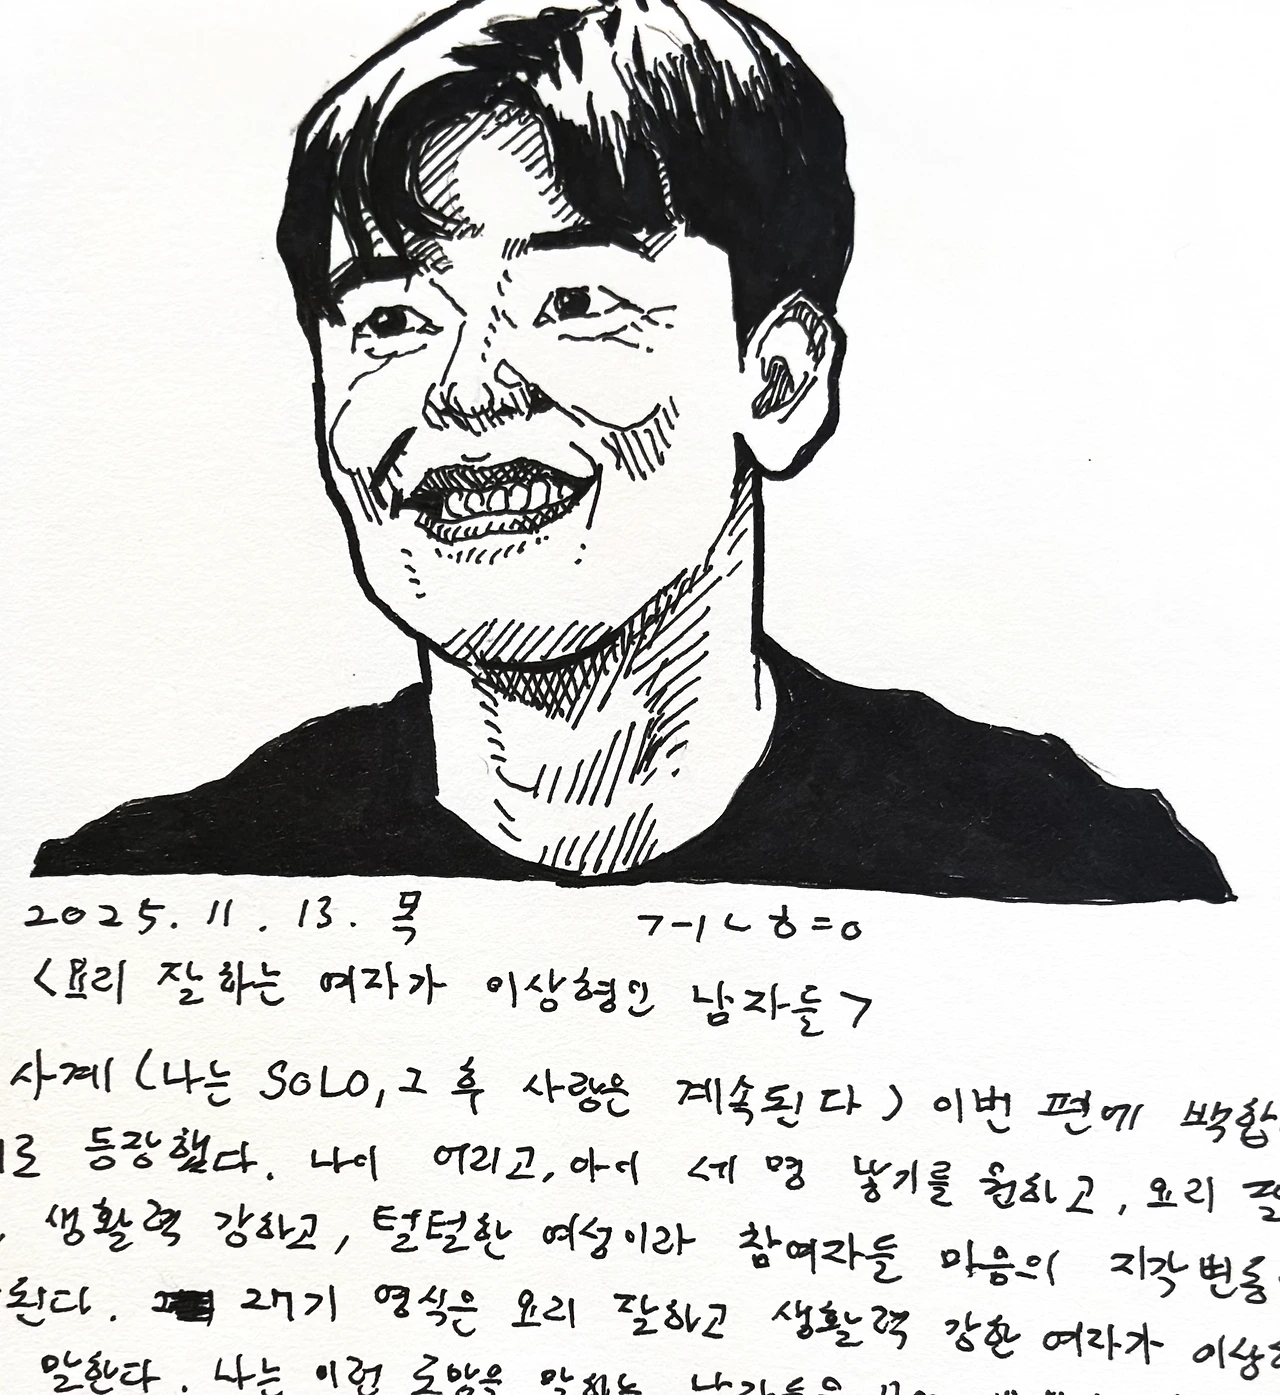 2025. 11. 13. 목 ㄱㅓㄴㅎ=ㅇ
<요리 잘하는 여자가 이상형인 남자들>
사계 (나는 SOLO, 그 후 사랑은 계속된다) 이번 편에 백합
로 등장했다. 나이 어리고, 아이 세 명 낳기를 원하고, 요리 잘
생활력 강하고, 털털한 여성이라 참여자들 마음의 지각변동
된다. 27기 영식은 요리 잘하고 생활력 강한 여자가 이상
말한다. 나는 이런 로망을 말하는 남자들을